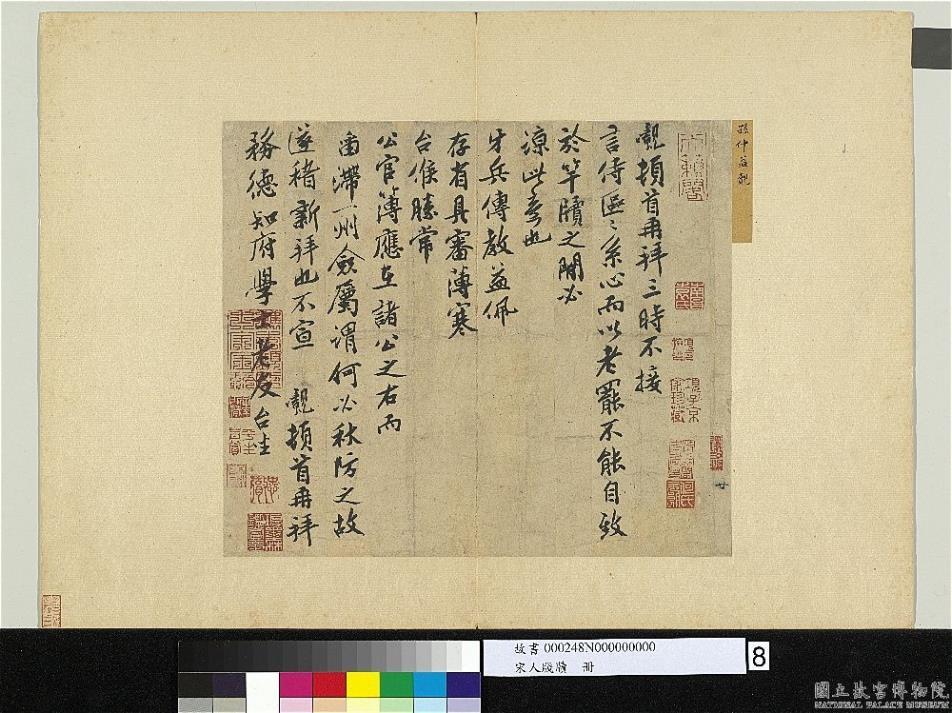 孫仲益覿
覿頓首再拜三時不接
言侍區區系心而以老罷不能自致
於竿牘之間必
諒此意也
牙兵傳教益佩
存省具審薄寒
台候勝常
公官簿應在諸公之右而
留滯一州僉屬謂何必秋防之故
遂稽新拜也不宣 覿頓首再拜
務德知府學士老友台坐
故書 000248N000000000
宋人牋牘 冊
8
國立故宮博物院
NATIONAL PALACE MUSEUM